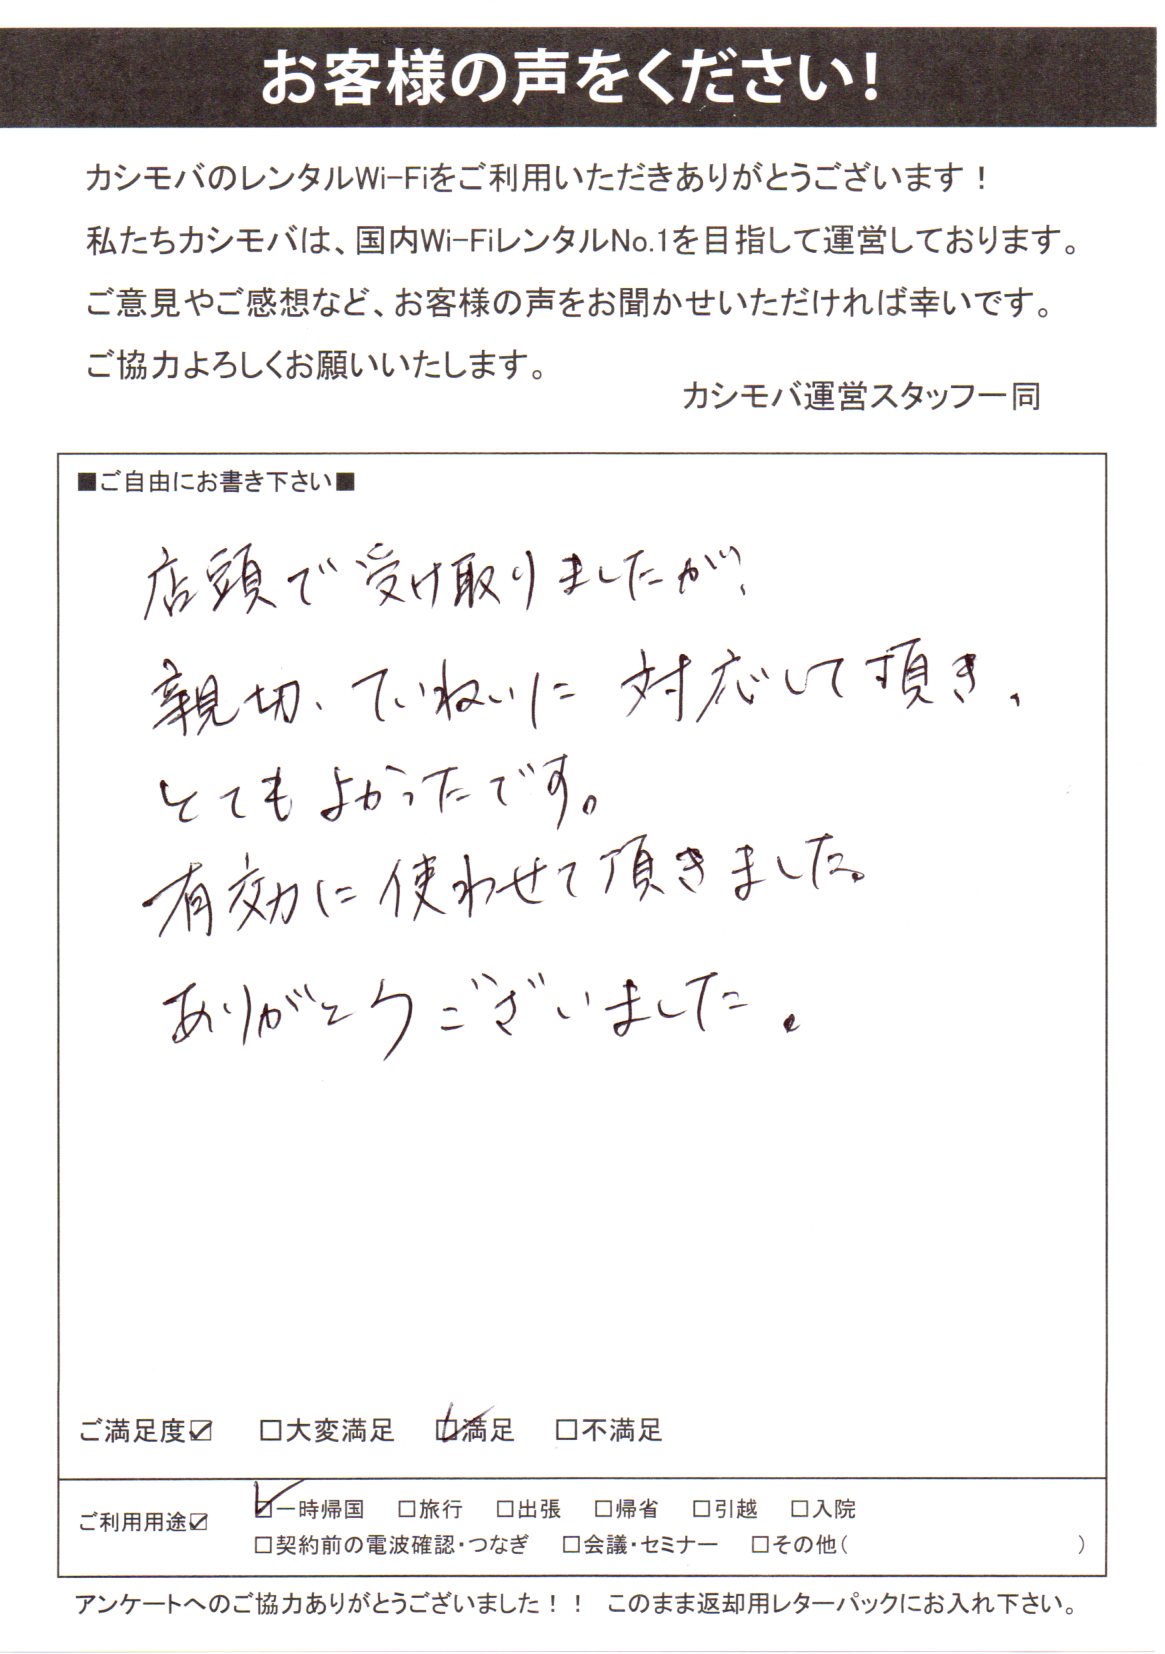 お客様の声をください!
カシモバのレンタルWi-Fiをご利用いただきありがとうございます!
私たちカシモバは、国内Wi-FiレンタルNo.1を目指して運営しております。
ご意見やご感想など、お客様の声をお聞かせいただければ幸いです。
ご協力よろしくお願いいたします。
カシモバ運営スタッフ一同
■ご自由にお書き下さい■
店頭で受け取りましたが、
親切、ていねいに対応して頂き、
とてもよかったです。
有効に使わせて頂きました。
ありがとうございました。
ご満足度☑ □大変満足 ☑満足 □不満足
ご利用用途☑ ☑一時帰国 □旅行 □出張 □帰省 □引越 □入院
□契約前の電波確認・つなぎ □会議・セミナー □その他( )
アンケートへのご協力ありがとうございました!! このまま返却用レターパックにお入れ下さい。